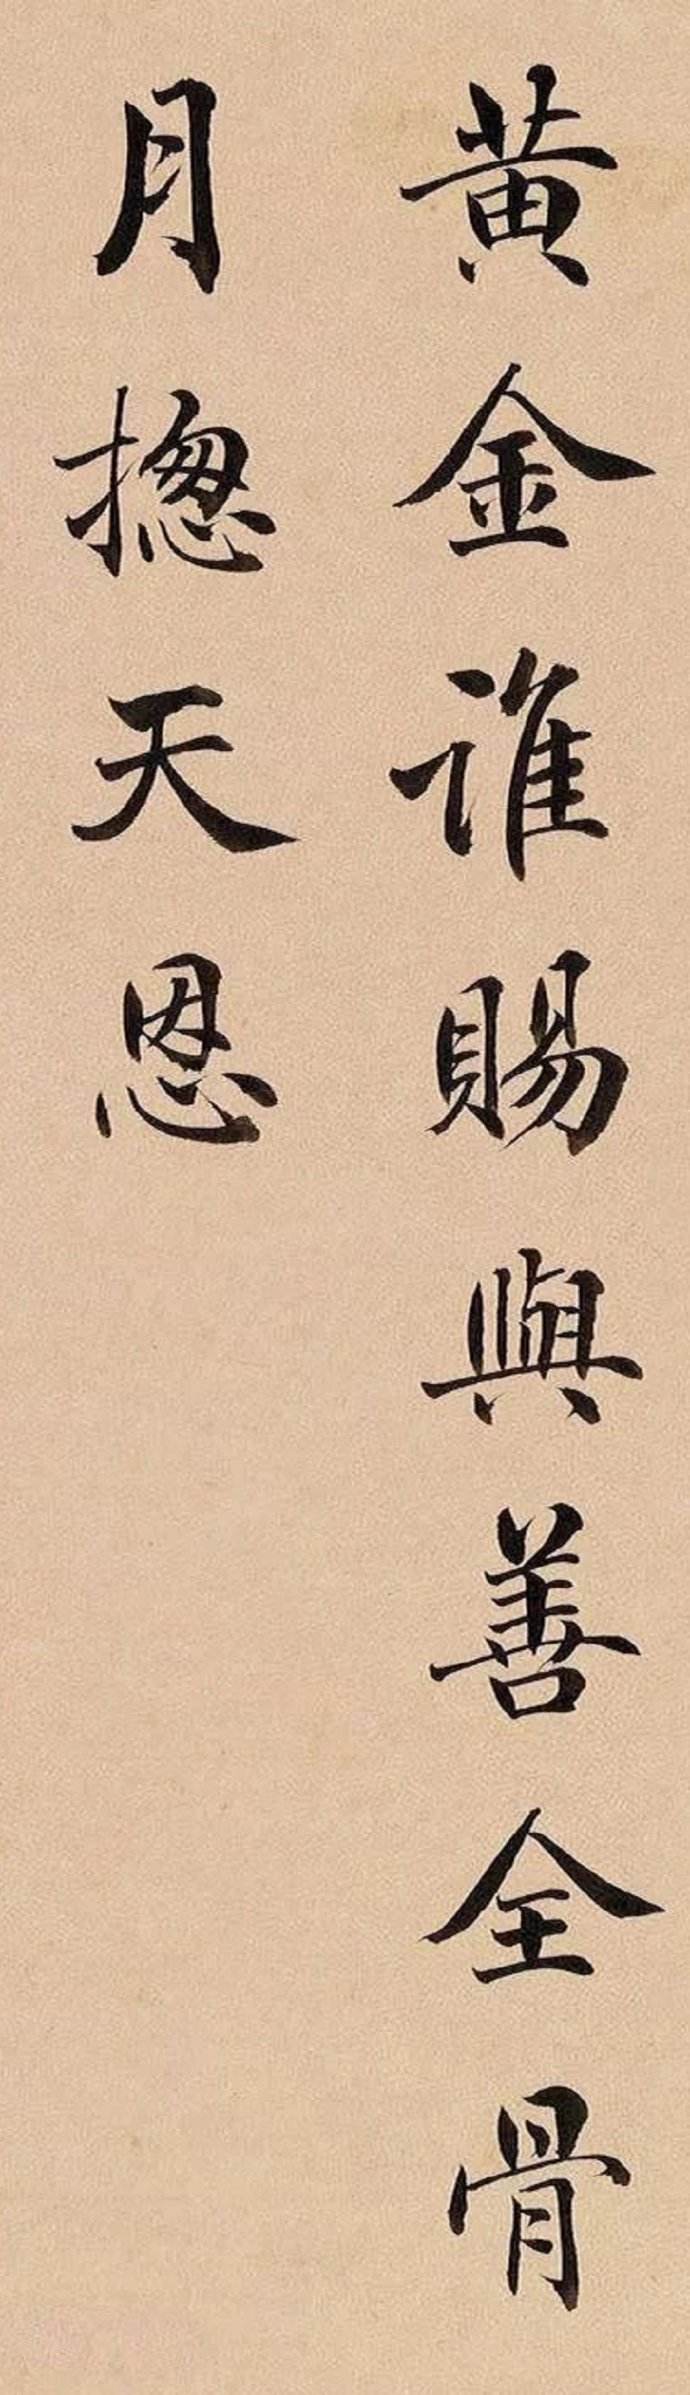 黄金誰賜與善全骨
月揔天恩